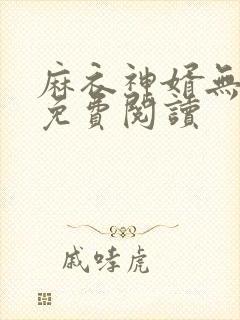 麻衣神婿無
免費閱讀
戚哮虎